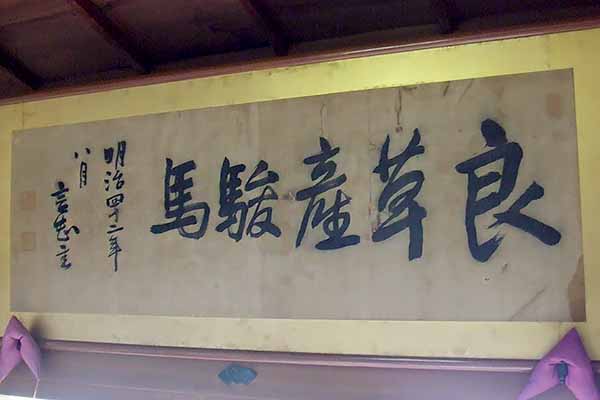 良草産駿馬
明治四十二年
八月
言忠